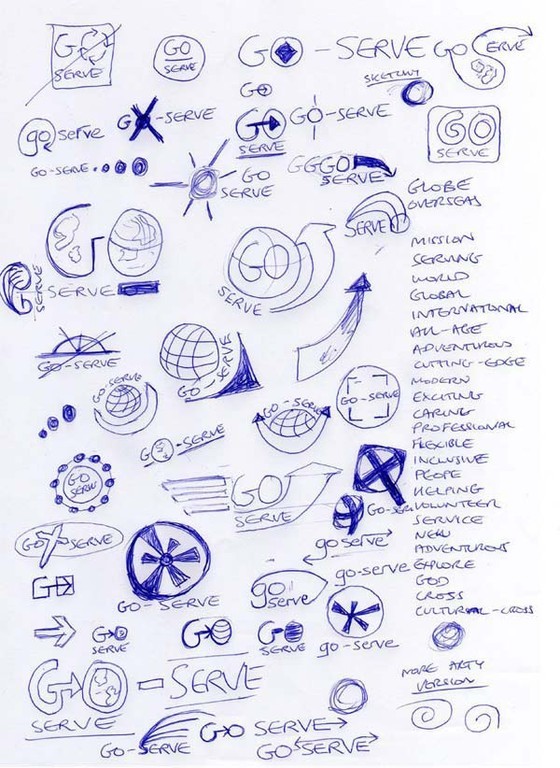 GO
SERVE
GO
SERVE
GO - SERVE
GO SERVE
GO
SKETCHY
go serve
GX-SERVE
GO
SERVE
GO-SERVE
GO
SERVE
GO-SERVE
GO
SERVE
GGGO
SERVE
SERVE
GO
SERVE
GO
SERVE
GO
SERVE
GO-SERVE
GO-SERVE
GO-SERVE
GO-SERVE
GO-SERVE
GO-SERVE
GO
SERVE
GO
SERVE
GO-SERVE
GO SERVE
go serve
GO
GO-SERVE
go
serve
go-serve
GO
SERVE
GO
GO
SERVE
go-serve
GO - SERVE
SERVE
GO-SERVE
GO SERVE
GO-SERVE
GLOBE
OVERSEAS
MISSION
SERVING
WORLD
GLOBAL
INTERNATIONAL
ALL-AGE
ADVENTUROUS
CUTTING-EDGE
MODERN
EXCITING
CARING
PROFESSIONAL
FLEXIBLE
INCLUSIVE
PEOPE
HELPING
VOLUNTEER
SERVICE
NEW
ADVENTUROUS
EXPLORE
GOD
CROSS
CULTURAL-CROSS
MORE ARTY
VERSION